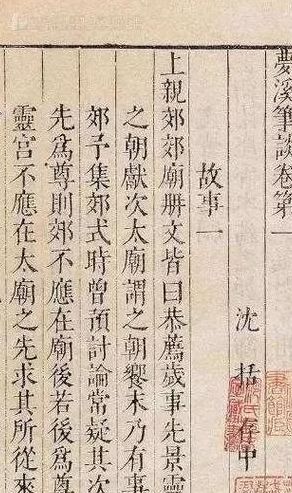 夢溪筆談卷第一
沈括存中
故事一
上親郊郊廟冊文皆曰恭薦歲事先景靈
之朝獻次太廟謂之朝饗末乃有事
郊予集郊式時曾預討論常疑其次
先為尊則郊不應在廟後若後為尊
靈宮不應在太廟之先求其所從來